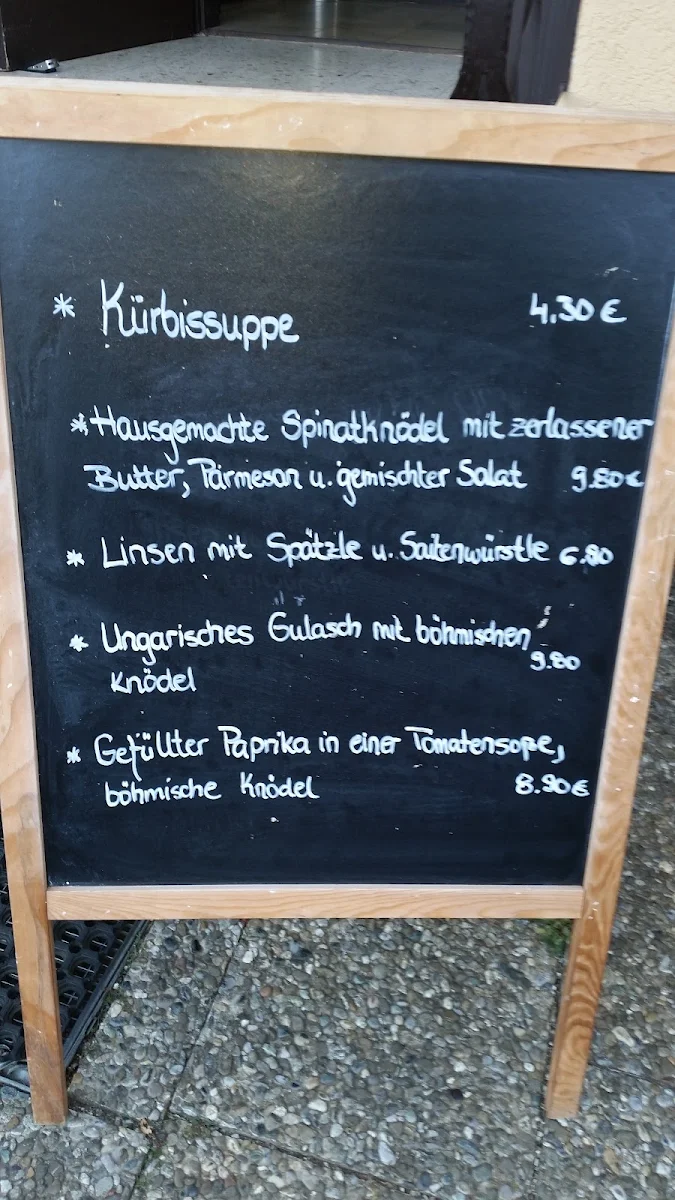 * Kürbissuppe 4.30 €
* Hausgemachte Spinatknödel mit zerlassener
Butter, Parmesan u. gemischter Salat 9.80 €
* Linsen mit Spätzle u. Saitenwürstle 6.80
* Ungarisches Gulasch mit böhmischen
9.80
Knödel
* Gefüllter Paprika in einer Tomatensoße,
böhmische Knödel 8.90 €